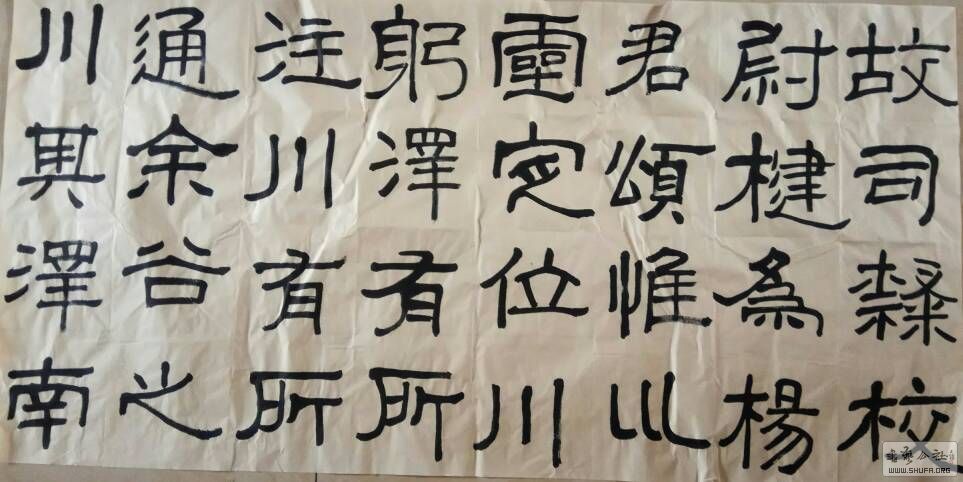 故司隸校
尉楗為楊
君頌惟巛
靈定位川
躬澤有所
注川有所
通余谷之
川其澤南
書藝公社
WWW.SHUFA.ORG